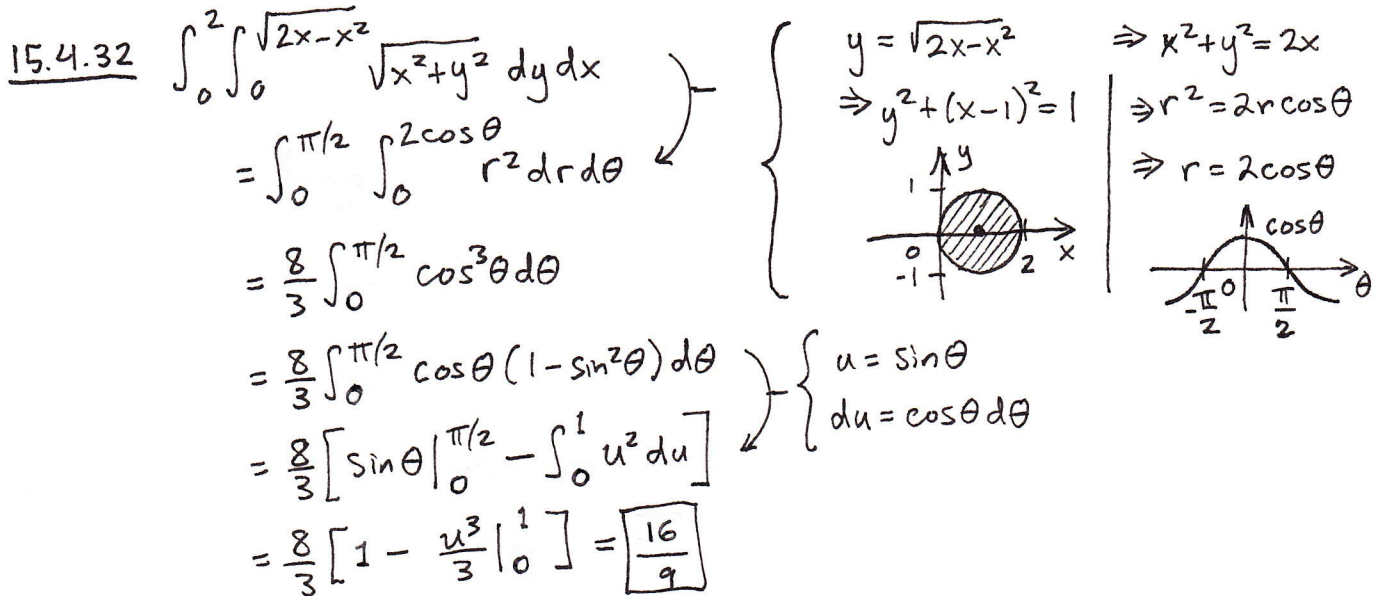 15.4.32 ∫₀² ∫₀^√(2x-x²) √(x²+y²) dy dx
= ∫₀^π/2 ∫₀^2cosθ r² dr dθ
= 8/3 ∫₀^π/2 cos³θ dθ
= 8/3 ∫₀^π/2 cosθ (1-sin²θ) dθ
= 8/3 [sinθ|₀^π/2 - ∫₀¹ u² du]
= 8/3 [1 - u³/3|₀¹] = 16/9
y = √(2x-x²)
⇒ y²+(x-1)² = 1
y
1
0
-1
2
x
⇒ x²+y² = 2x
⇒ r² = 2r cosθ
⇒ r = 2cosθ
cosθ
-π/2 0 π/2 θ
u = sinθ
du = cosθ dθ